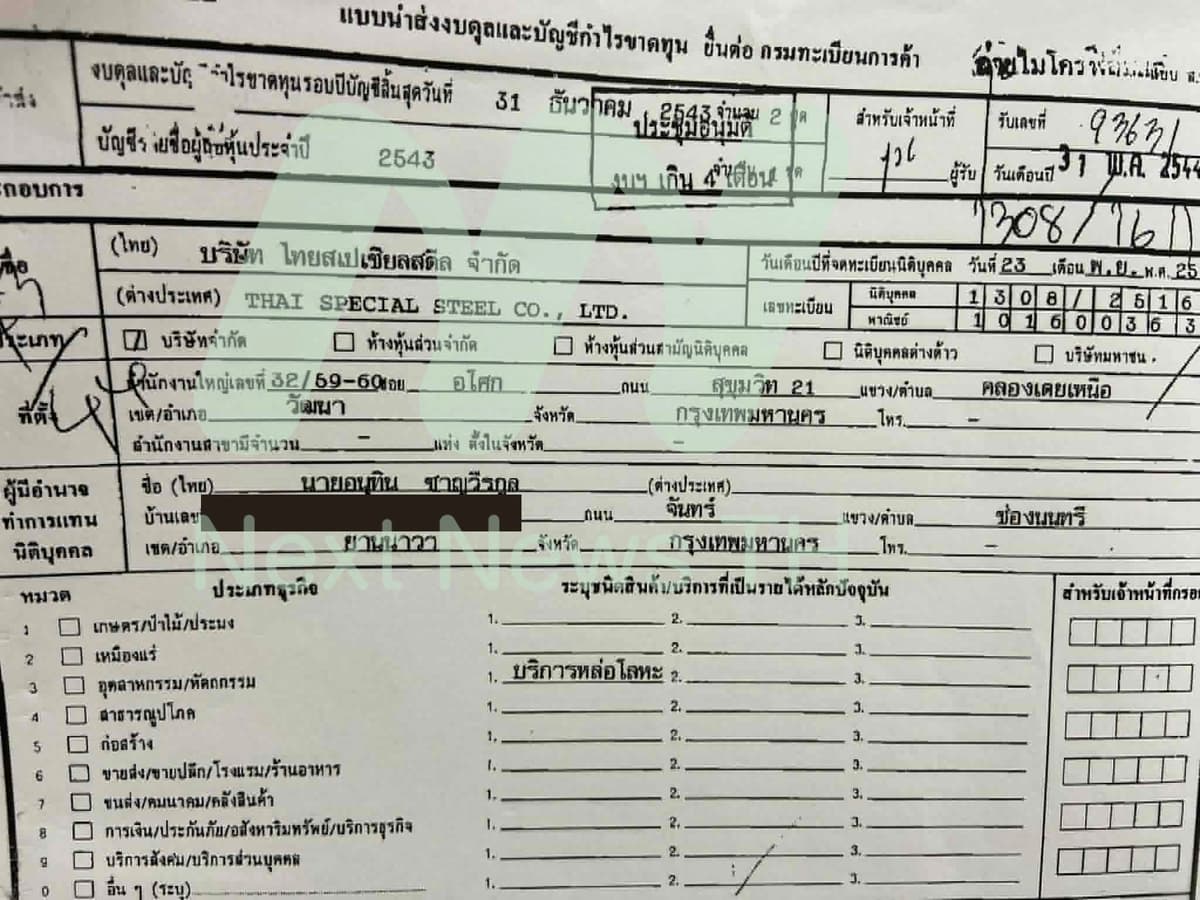 แบบนำส่งงบดุลและบัญชีกำไรขาดทุน ยื่นต่อ กรมทะเบียนการค้า
งบดุลและบัญชีกำไรขาดทุนรอบปีบัญชีสิ้นสุดวันที่ 31 ธันวาคม 2543 จำนวน 2 ชุด
ประชุมอนุมัติ
งบฯ เกิน 4 เดือน
บัญชีรายชื่อผู้ถือหุ้นประจำปี 2543
สำหรับเจ้าหน้าที่
ผู้รับ
รับเลขที่ 93631
วันเดือนปี 31 พ.ค. 2544
กอบการ
1308/16
ชื่อ
(ไทย) บริษัท ไทยสเปเชียลสตีล จำกัด
วันเดือนปีที่จดทะเบียนนิติบุคคล วันที่ 23 เดือน พ.ย. พ.ศ. 25
(ต่างประเทศ) THAI SPECIAL STEEL CO., LTD.
เลขทะเบียน นิติบุคคล 1308/2516
พาณิชย์ 101600363
ประเภท บริษัทจำกัด ห้างหุ้นส่วนจำกัด ห้างหุ้นส่วนสามัญนิติบุคคล นิติบุคคลต่างด้าว บริษัทมหาชน
ที่ตั้ง สำนักงานใหญ่เลขที่ 32/59-60 ซอย อโศก ถนน สุขุมวิท 21 แขวง/ตำบล คลองเตยเหนือ
เขต/อำเภอ วัฒนา จังหวัด กรุงเทพมหานคร โทร. -
สำนักงานสาขามีจำนวน - แห่ง ตั้งในจังหวัด -
ผู้มีอำนาจ ชื่อ (ไทย) นายอนุทิน ชาญวีรกูล (ต่างประเทศ)
ทำการแทน บ้านเลข ถนน จันทร์ แขวง/ตำบล ช่องนนทรี
นิติบุคคล เขต/อำเภอ ยานนาวา จังหวัด กรุงเทพมหานคร โทร. -
Next News TH
หมวด ประเภทธุรกิจ ระบุชนิดสินค้า/บริการที่เป็นรายได้หลักปัจจุบัน สำหรับเจ้าหน้าที่กรอก
1 เกษตร/ป่าไม้/ประมง 1. 2. 3.
2 เหมืองแร่ 1. 2. 3.
3 อุตสาหกรรม/หัตถกรรม 1. บริการหล่อโลหะ 2. 3.
4 สาธารณูปโภค 1. 2. 3.
5 ก่อสร้าง 1. 2. 3.
6 ขายส่ง/ขายปลีก/โรงแรม/ร้านอาหาร 1. 2. 3.
7 ขนส่ง/คมนาคม/คลังสินค้า 1. 2. 3.
8 การเงิน/ประกันภัย/อสังหาริมทรัพย์/บริการธุรกิจ 1. 2. 3.
9 บริการสังคม/บริการส่วนบุคคล 1. 2. 3.
0 อื่น ๆ (ระบุ) 1. 2. 3.